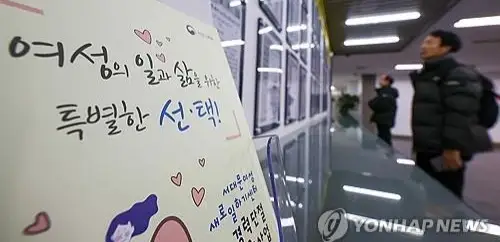 여성의 일과 삶을 위한
특별한 선·택!
서대문여성
새로일하기센터
경력단절
사업
YONHAP NEWS